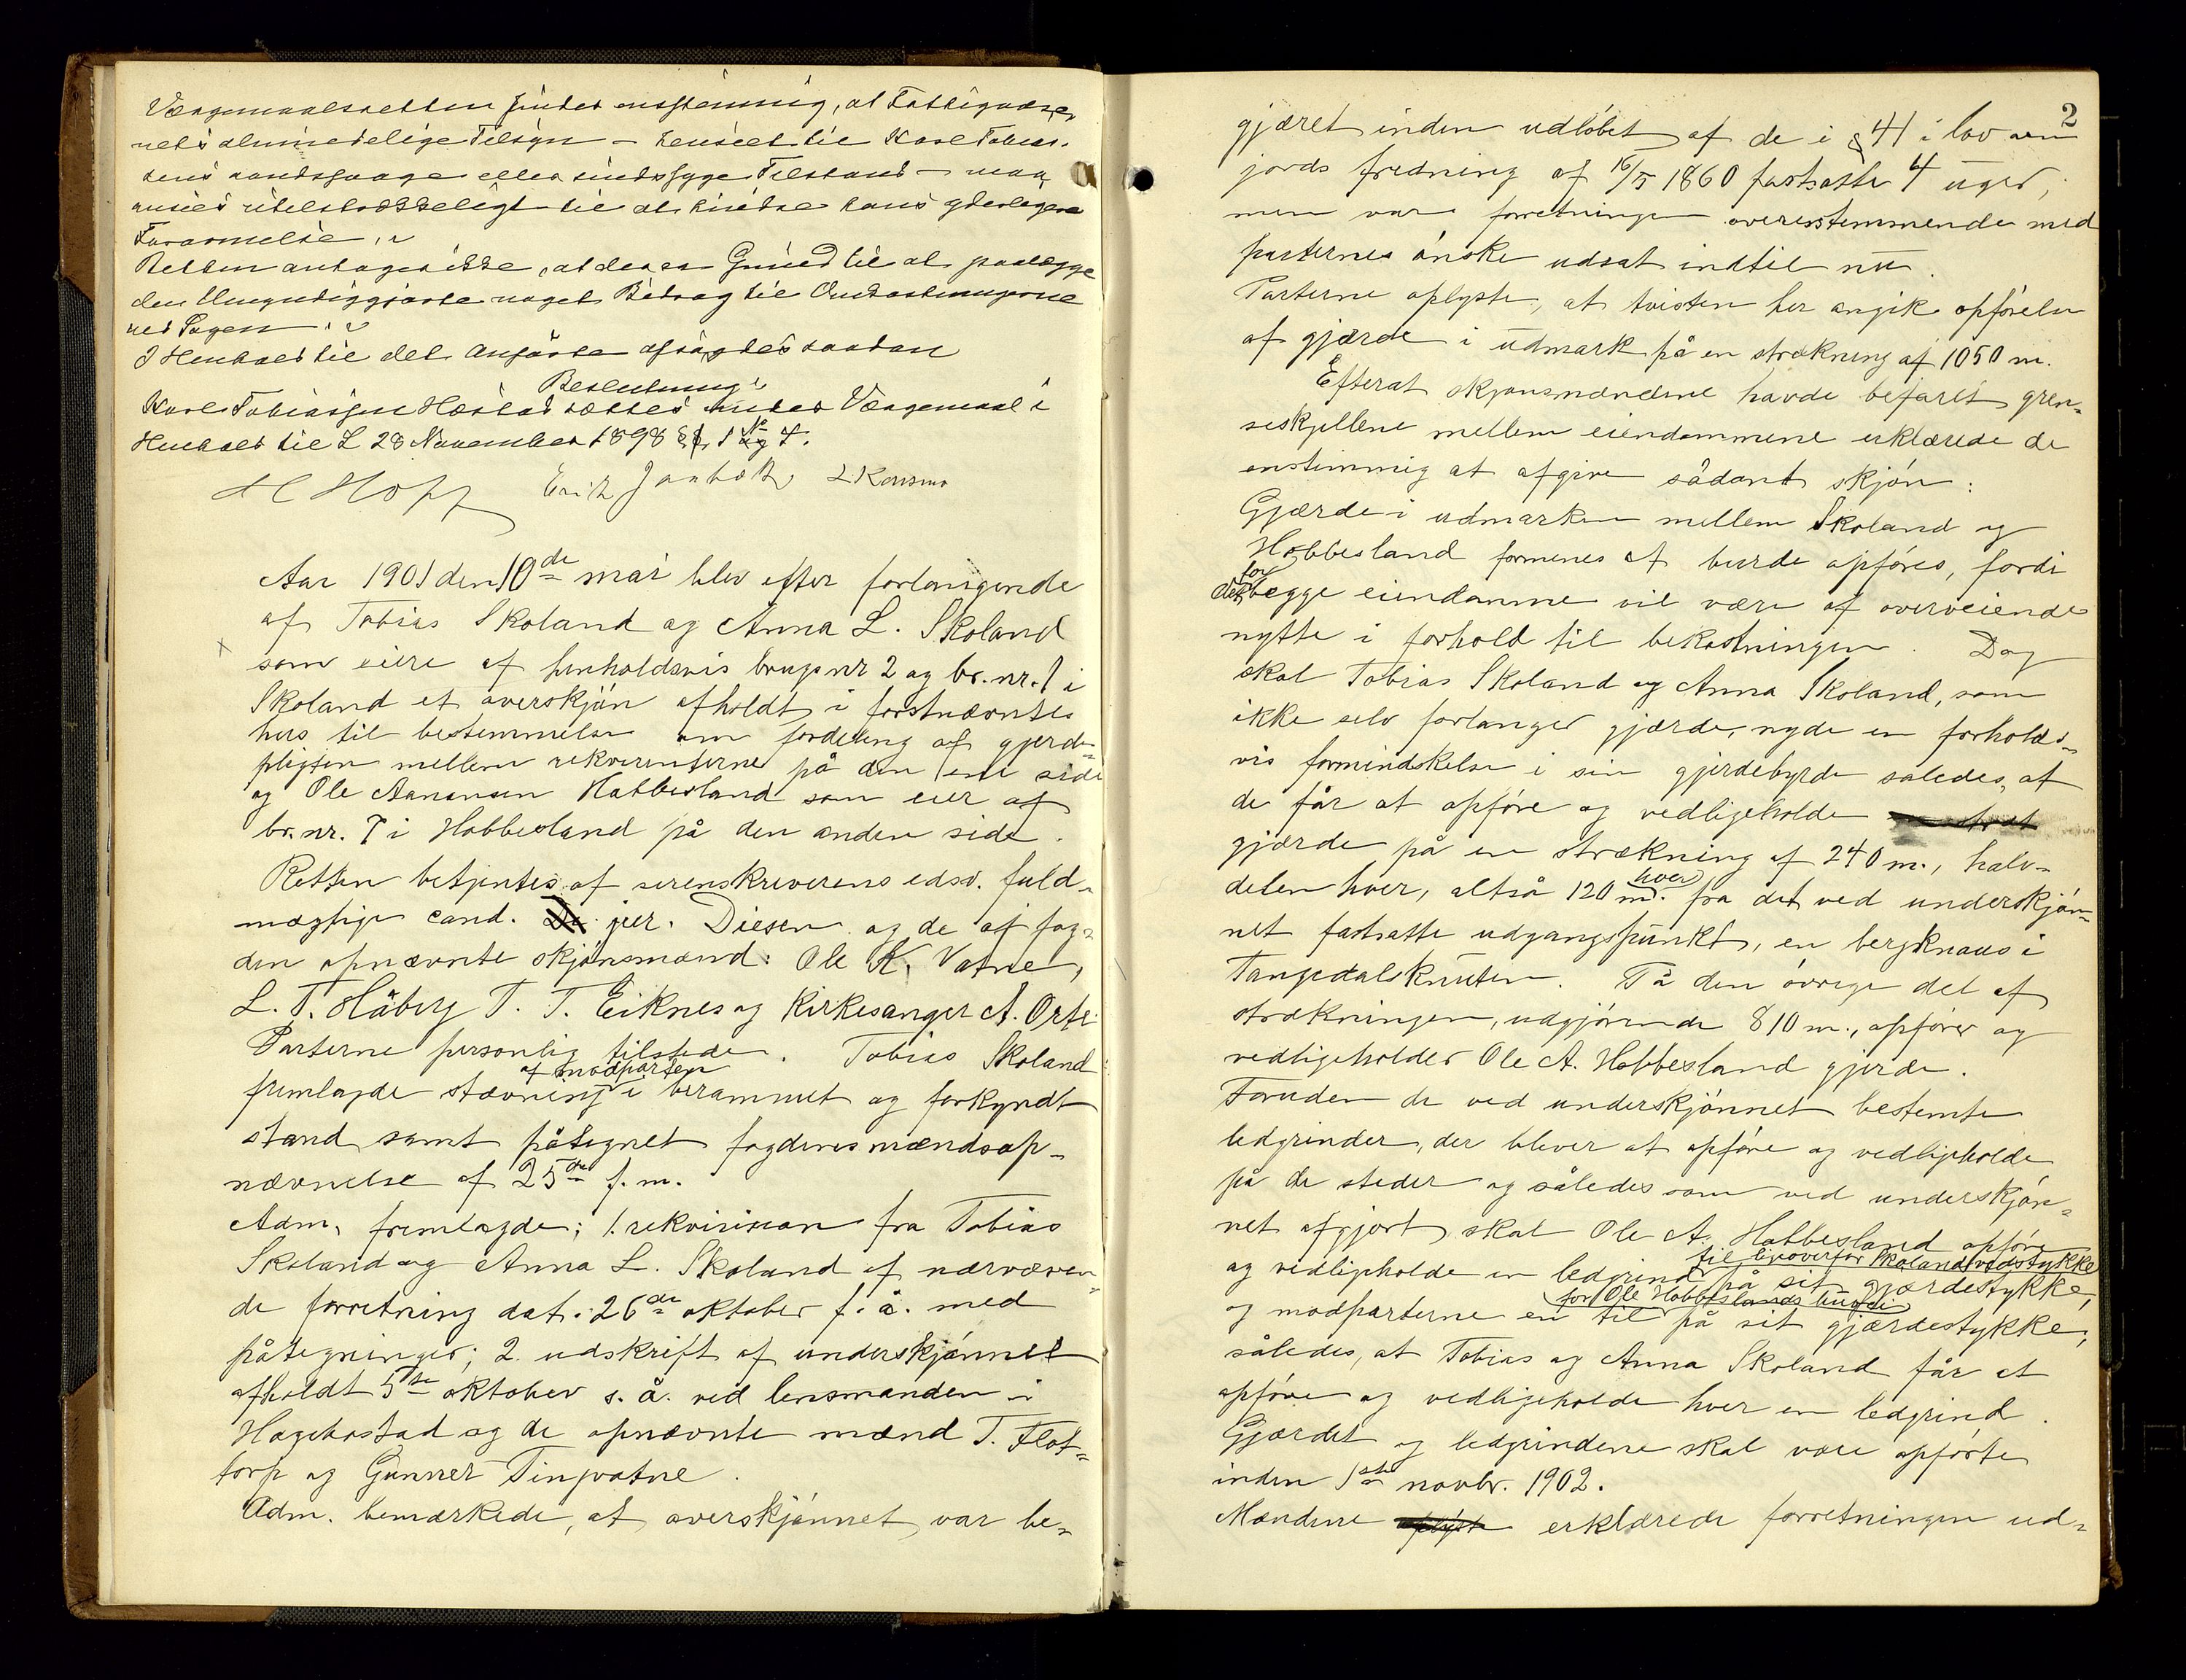 Værgemaalsretten finder enstemmig, at Fattigvæse-
nets almindelige Tilsyn – henseet til Karl Tobias-
sens aandssvage eller sindssyge Tilstand – maa
ansees utilstrækkeligt til at hindre hans yderligere
Forarmelse.
Retten antager ikke, at der er Grund til at paalægge
den Umyndiggjorte noget Bidrag til Omkostningerne
ved Sagen.
I Henhold til det Anførte afsagdes saadan
Beslutning:
Karl Tobiassen Hæstad sættes under Værgemaal i
Henhold til L 28 November 1898 § 1 No 4.
H Hopp Erik Jaabæk L Konsmo
Aar 1901 den 10de mai blev efter forlangende
af Tobias Skoland og Anna L. Skoland
som eiere af henholdsvis brugs nr 2 og br. nr. 1 i
Skoland et overskjøn afholdt i førstnævntes
hus til bestemmelse om fordeling af gjerde-
pligten mellem rekvirenterne på den ene side
og Ole Aanensen Hobbesland som eier af
br. nr. 7 i Hobbesland på den anden side.
Retten betjentes af sorenskriverens edsv. fuld-
mægtige cand. jur. Diesen og de af fog-
den opnævnte skjønsmænd: Ole K. Vatne,
L. T. Håberg T. T. Eiknes og Kirkesanger A. Orte.
Parterne personlig tilstede. Tobias Skoland
af modparten
fremlagde stævning i berammet og forkyndt
stand samt påtegnet fogdens mændsop-
nævnelse af 25de f. m.
Adm. fremlagde: 1. rekvisition fra Tobias
Skoland og Anna L. Skoland af nærværen-
de forretning dat. 26de oktober f. å. med
påtegninger; 2. udskrift af underskjønnet
afholdt 5te oktober s. å. ved lensmanden i
Hægebostad og de opnævnte mænd T. Flot-
torp og Gunner Tingvatne.
Adm. bemærkede, at overskjønnet var be-
2
gjæret inden udløbet af de i § 41 i lov om
jords fredning af 16/5 1860 fastsatte 4 uger,
men var forretningen overensstemmende med
parternes ønske udsat indtil nu.
Parterne oplyste, at tvisten her angik opførelse
af gjærde i udmark på en strækning af 1050 m.
Efterat skjønsmændene havde befaret græn-
seskjellene mellem eiendommene erklærede de
enstimmig at afgive sådant skjøn:
Gjærde i udmarken mellem Skoland og
Hobbesland formenes at burde opføres, fordi
for
det begge eiendomme vil være af overveiende
nytte i forhold til bekostningen. Dog
skal Tobias Skoland og Anna Skoland, som
ikke selv forlanger gjærde, nyde en forholds-
vis formindskelse i sin gjerdebyrde således, at
de får at opføre og vedligeholde
gjærde på en strækning af 240 m., halv-
hver
delen hver, altså 120 m. fra det ved underskjøn-
net fastsatte udgangspunkt, en bergknaus i
Tangedalsknuten. På den øvrige del af
strækningen, udgjørende 810 m., opfører og
vedligeholder Ole A. Hobbesland gjerde.
Foruden de ved underskjønnet bestemte
ledgrinder, der bliver at opføre og vedligeholde
på de steder og således som ved underskjøn-
net afgjort, skal Ole A. Hobbesland opføre
til ligeoverfor Skolandvedstykke
og vedligeholde en ledgrind på sit gjærdestykke,
for Ole Hobbeslands
og modparterne en til på sit gjærdestykke;
således, at Tobias og Anna Skoland får at
opføre og vedligeholde hver en ledgrind.
Gjærdet og ledgrindene skal være opførte
inden 1ste novbr. 1902.
Mændene erklærede forretningen ud-